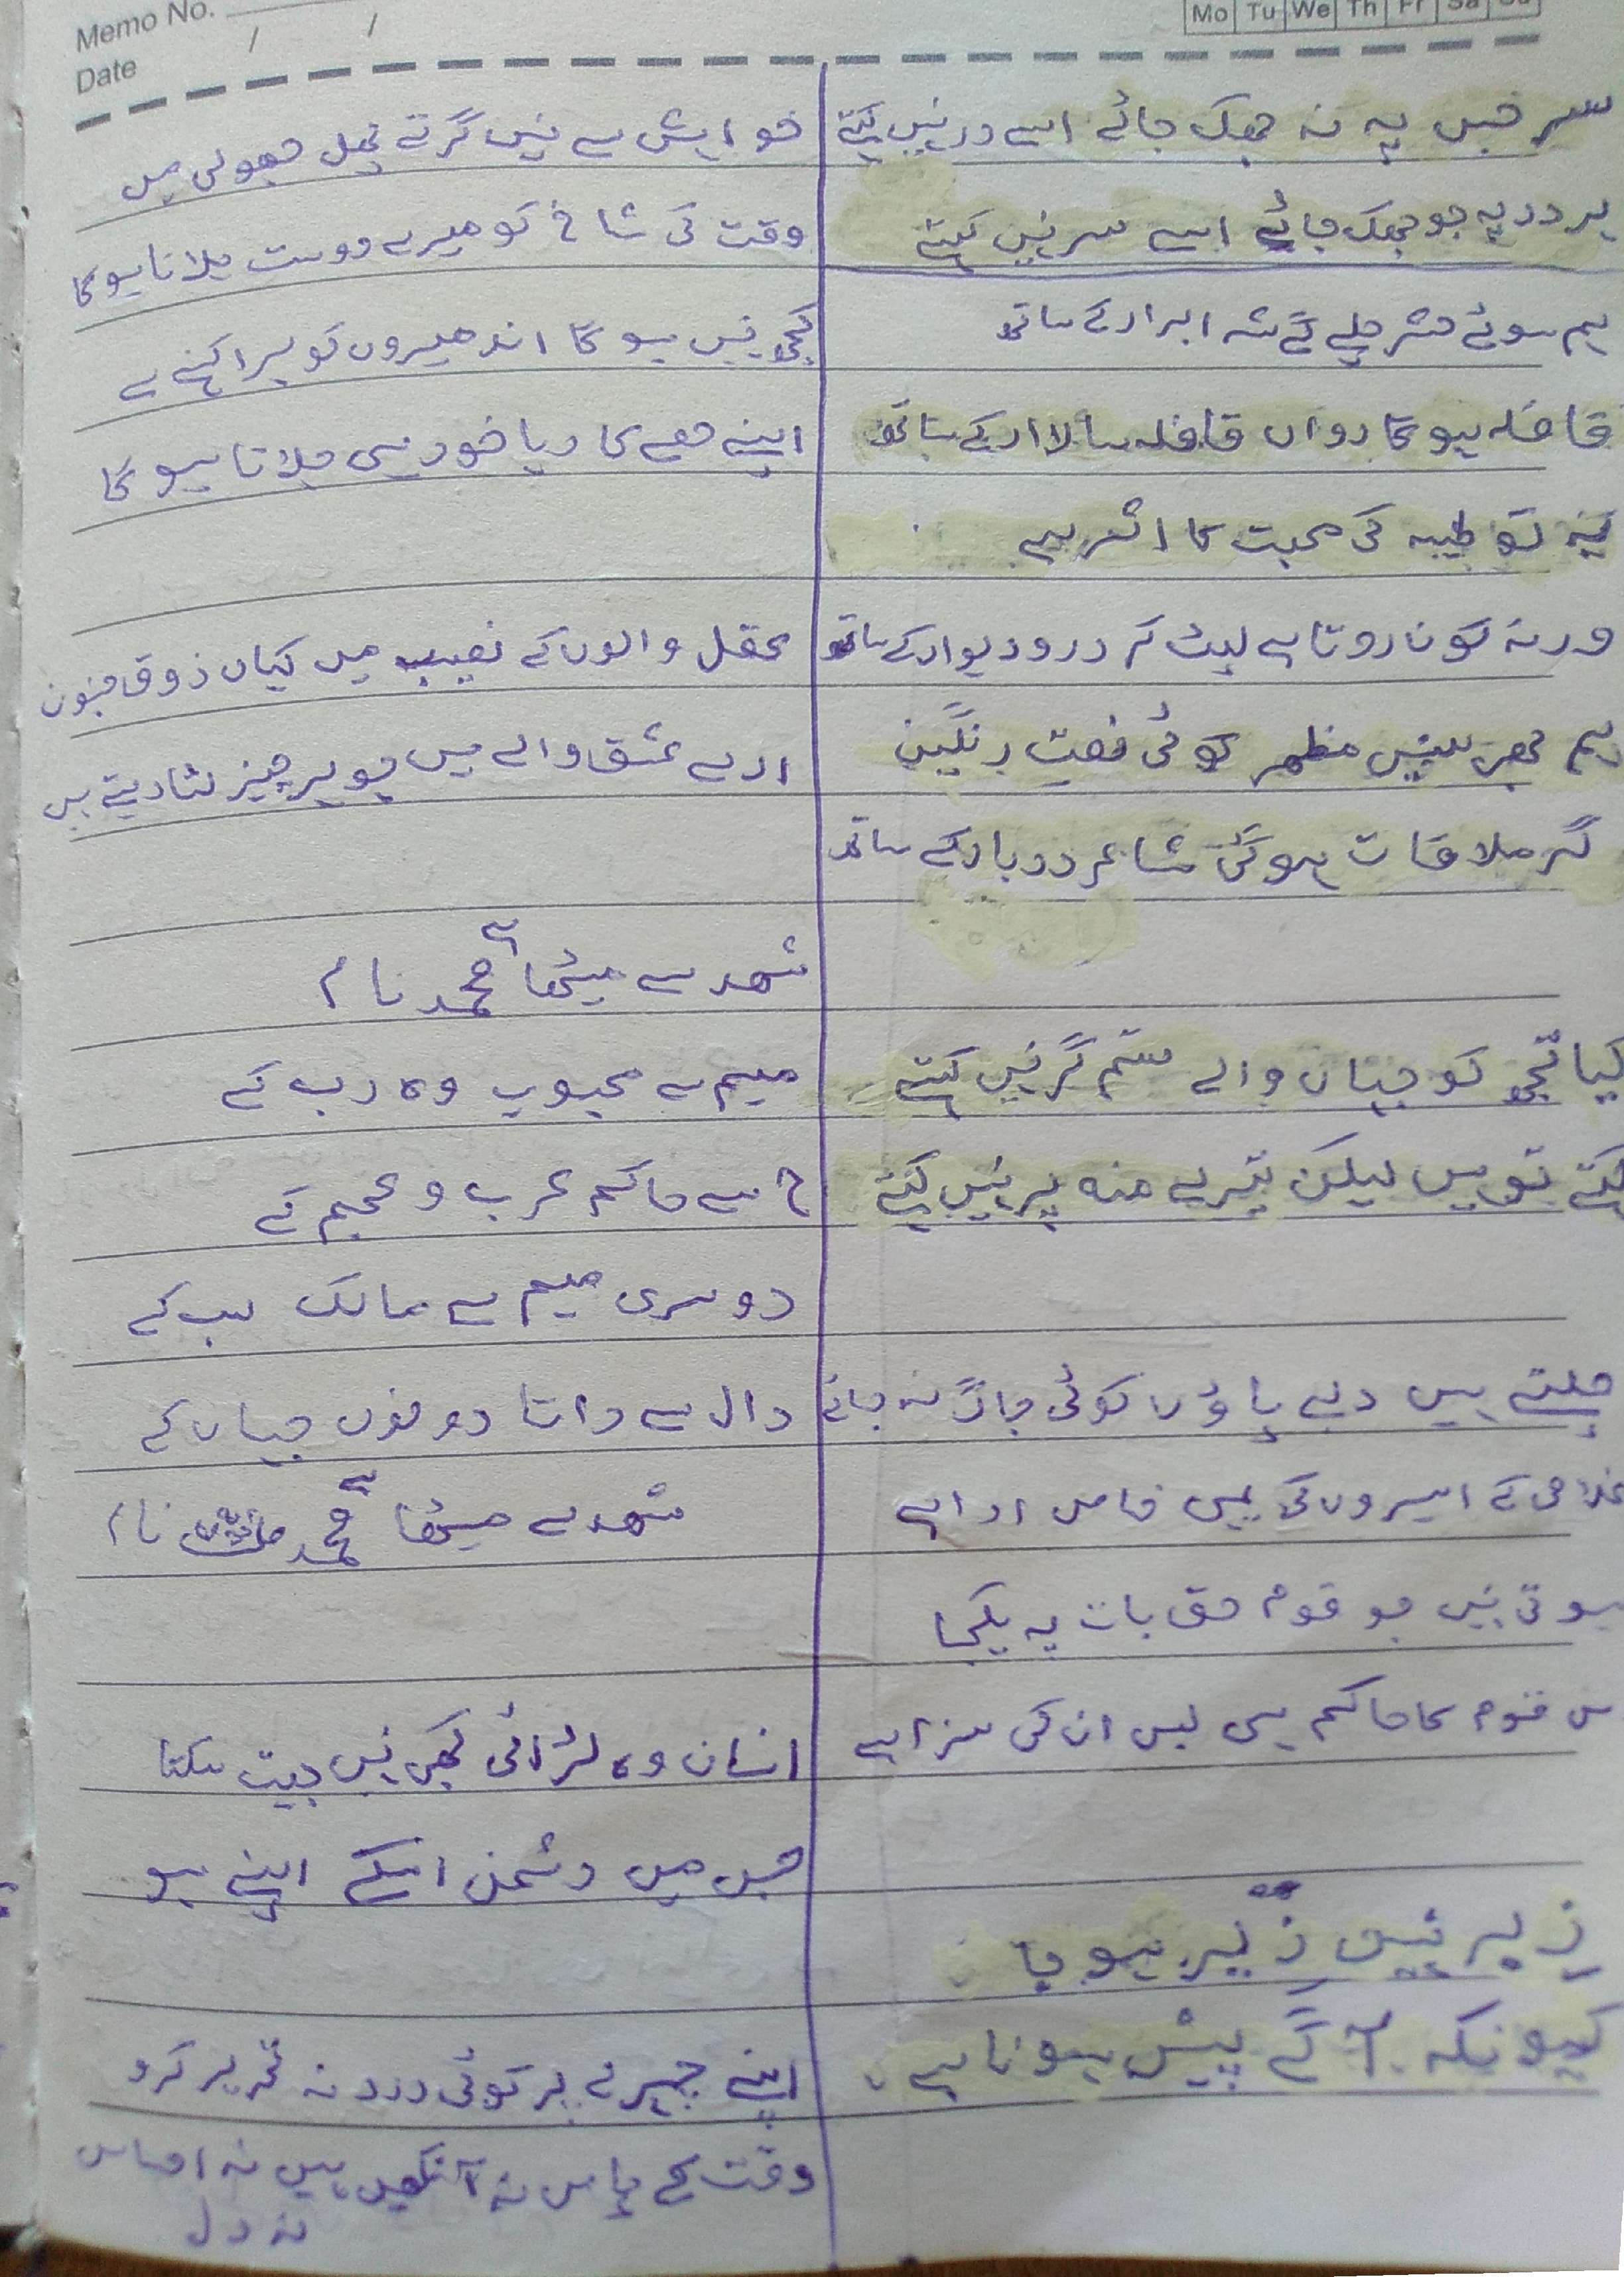 Memo No.
Date / /
Mo Tu We Th Fr Sa Su
سر جس پہ نہ جھک جائے اسے در نہیں کہتے
ہر در پہ جو جھک جائے اسے سر نہیں کہتے
ہم سوئے حشر چلے گے شہ ابرار کے ساتھ
قافلہ ہو گا رواں قافلہ سالار کے ساتھ
یہ تو طیبہ کی محبت کا اثر ہے
ورنہ کون روتا ہے لپٹ کر در و دیوار کے ساتھ
ہم بھی مظہر کوئی نعت رنگین
گر ملاقات ہو گئی شاعر دربار کے ساتھ
کیا تجھ کو جہاں والے ستم گر نہیں کہتے
کہتے تو ہیں لیکن تیرے منہ پر نہیں کہتے
چلتے ہیں دبے پاؤں کوئی جاگ نہ جائے
غلامی کے اسیروں کی یہی خاص ادا ہے
ہوتی نہیں جو قوم حق بات پہ یکجا
اس قوم کا حاکم ہی بس ان کی سزا ہے
زبر نہیں زیر ہو جا
کیونکہ آگے پیش ہونا ہے
خواہش سے نہیں گرتے پھل جھولی میں
وقت کی شاخ کو میرے دوست ہلانا ہو گا
کچھ نہیں ہو گا اندھیروں کو برا کہنے سے
اپنے حصے کا دیا خود ہی جلانا ہو گا
عقل والوں کے نصیب میں کہاں ذوق جنون
ارے عشق والے ہیں جو ہر چیز لٹا دیتے ہیں
شہد سے میٹھا ہے محمد نام
میم سے محبوب وہ رب کے
ح سے حاکم عرب و عجم کے
دوسری میم سے مالک سب کے
دال سے داتا دونوں جہاں کے
شہد سے میٹھا ہے محمد ﷺ نام
انسان وہ لڑائی کبھی نہیں جیت سکتا
جس میں دشمن اسکے اپنے ہو
اپنے چہرے پر کوئی درد نہ تحریر کرو
وقت کے پاس نہ آنکھیں ہیں نہ احساس
نہ دل